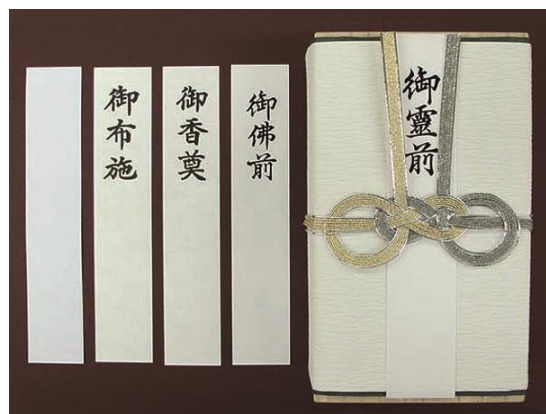 御布施
御香奠
御佛前
御靈前